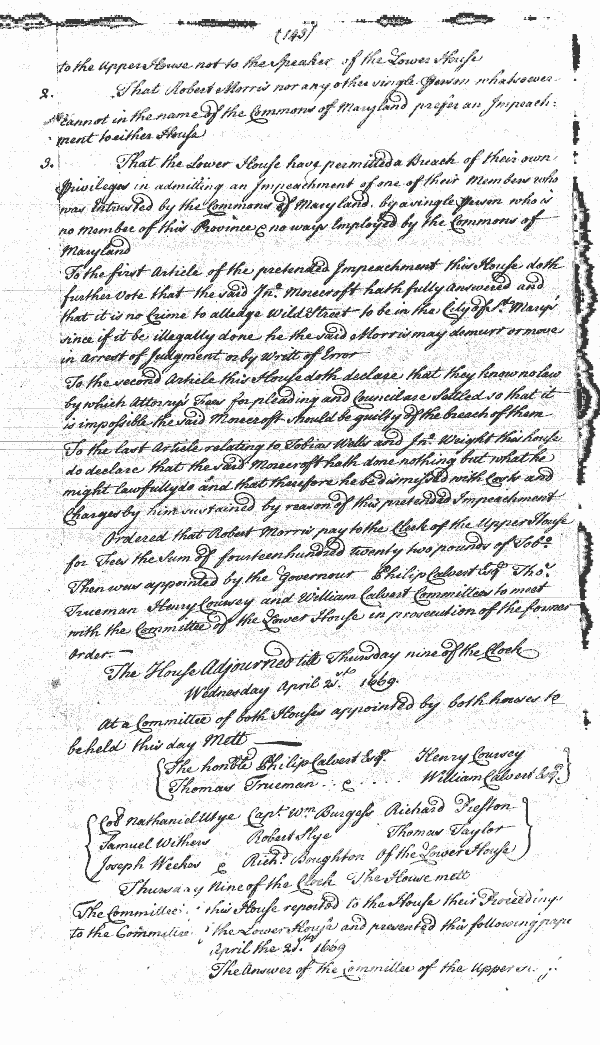 (143)
to the Upper House not to the Speaker of the Lower House
2. That Robert Morris nor any other single Person whatsoever
cannot in the name of the Commons of Maryland prefer an Impeach:
ment to either House
3. That the Lower House have permitted a Breach of their own
Priviledges in admitting an Impeachment of one of their Members who
was Entrusted by the Commons of Maryland, by a single Person who is
no Member of this Province & no ways Employed by the Commons of
Maryland
To the first Article of the pretended Impeachment this House doth
further Vote that the said Jno. Morecroft hath fully Answered and
that it is no Crime to alledge Wild Street to be in the City of St. Marys
since if it be illegally done he the said Morris may demurr or move
in Arrest of Judgment or by Writ of Error
To the second Article this House doth declare that they know no law
by which Attorneys Fees for pleading and Councel are Settled so that it
is impossible the said Morecroft should be guilty of the breach of them
To the last Article relating to Tobias Wells and Jno. Wright this house
do declare that the said Morecroft hath done nothing but what he
might lawfully do and that therefore he be dismissed with Costs and
Charges by him sustained by reason of this pretended Impeachment
Ordered that Robert Morris pay to the Clerk of the Upper House
for Fees the Sum of fourteen hundred twenty two pounds of Tobo.
Then was appointed by the Governour Philip Calvert Esqr. Thos.
Trueman Henry Coursey and William Calvert Committees to meet
with the Committee of the Lower House in prosecution of the former
Order. —
The House Adjourned till Thursday nine of the Clock
Wednesday April 21st. 1669.
At a Committee of both Houses appointed by both houses to
be held this day Mett —
The honble Philip Calvert Esqr. Henry Coursey
Thomas Trueman .. & .... William Calvert Esqr.
Col Nathaniel Utye Capt. Wm Burgess Richard Preston
Samuel Withers Robert Slye Thomas Taylor
Joseph Weekes & Richd. Boughton Of the Lower House
Thursday Nine of the Clock The House mett
The Committee this House reported to the House their Proceedings
to the Committee the Lower House and presented this following pape
April the 21st. 1669
The Answer of the Committee of the Upper